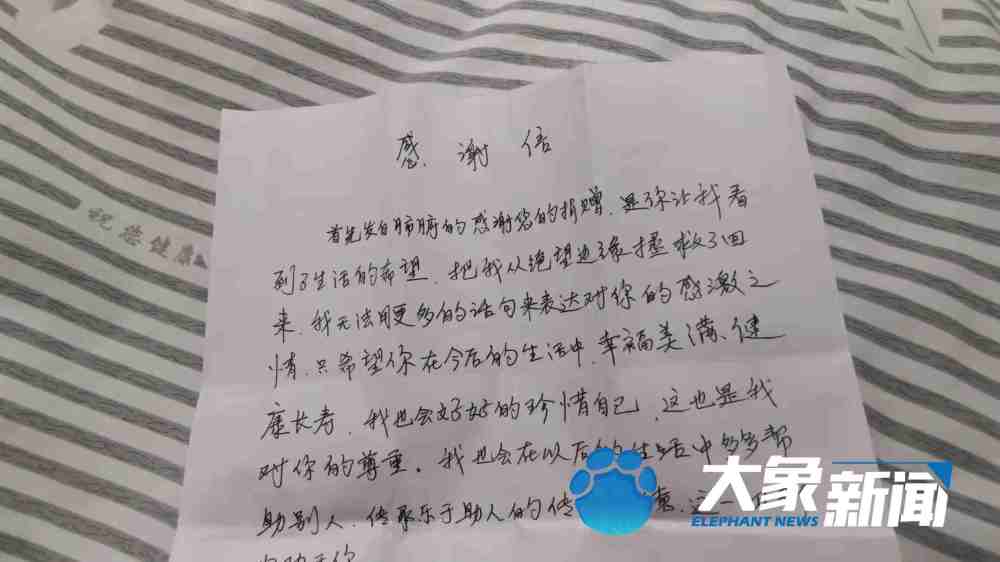 感谢信
首先发自肺腑的感谢您的捐赠，是你让我看
到了生活的希望，把我从绝望边缘拯救了回
来，我无法用更多的话句来表达对你的感激之
情，只希望你在今后的生活中，幸福美满、健
康长寿，我也会好好的珍惜自己，这也是我
对你的尊重。我也会在以后的生活中多多帮
助别人，传承乐于助人的传 意，这
祝您健康
大象新闻
ELEPHANT NEWS